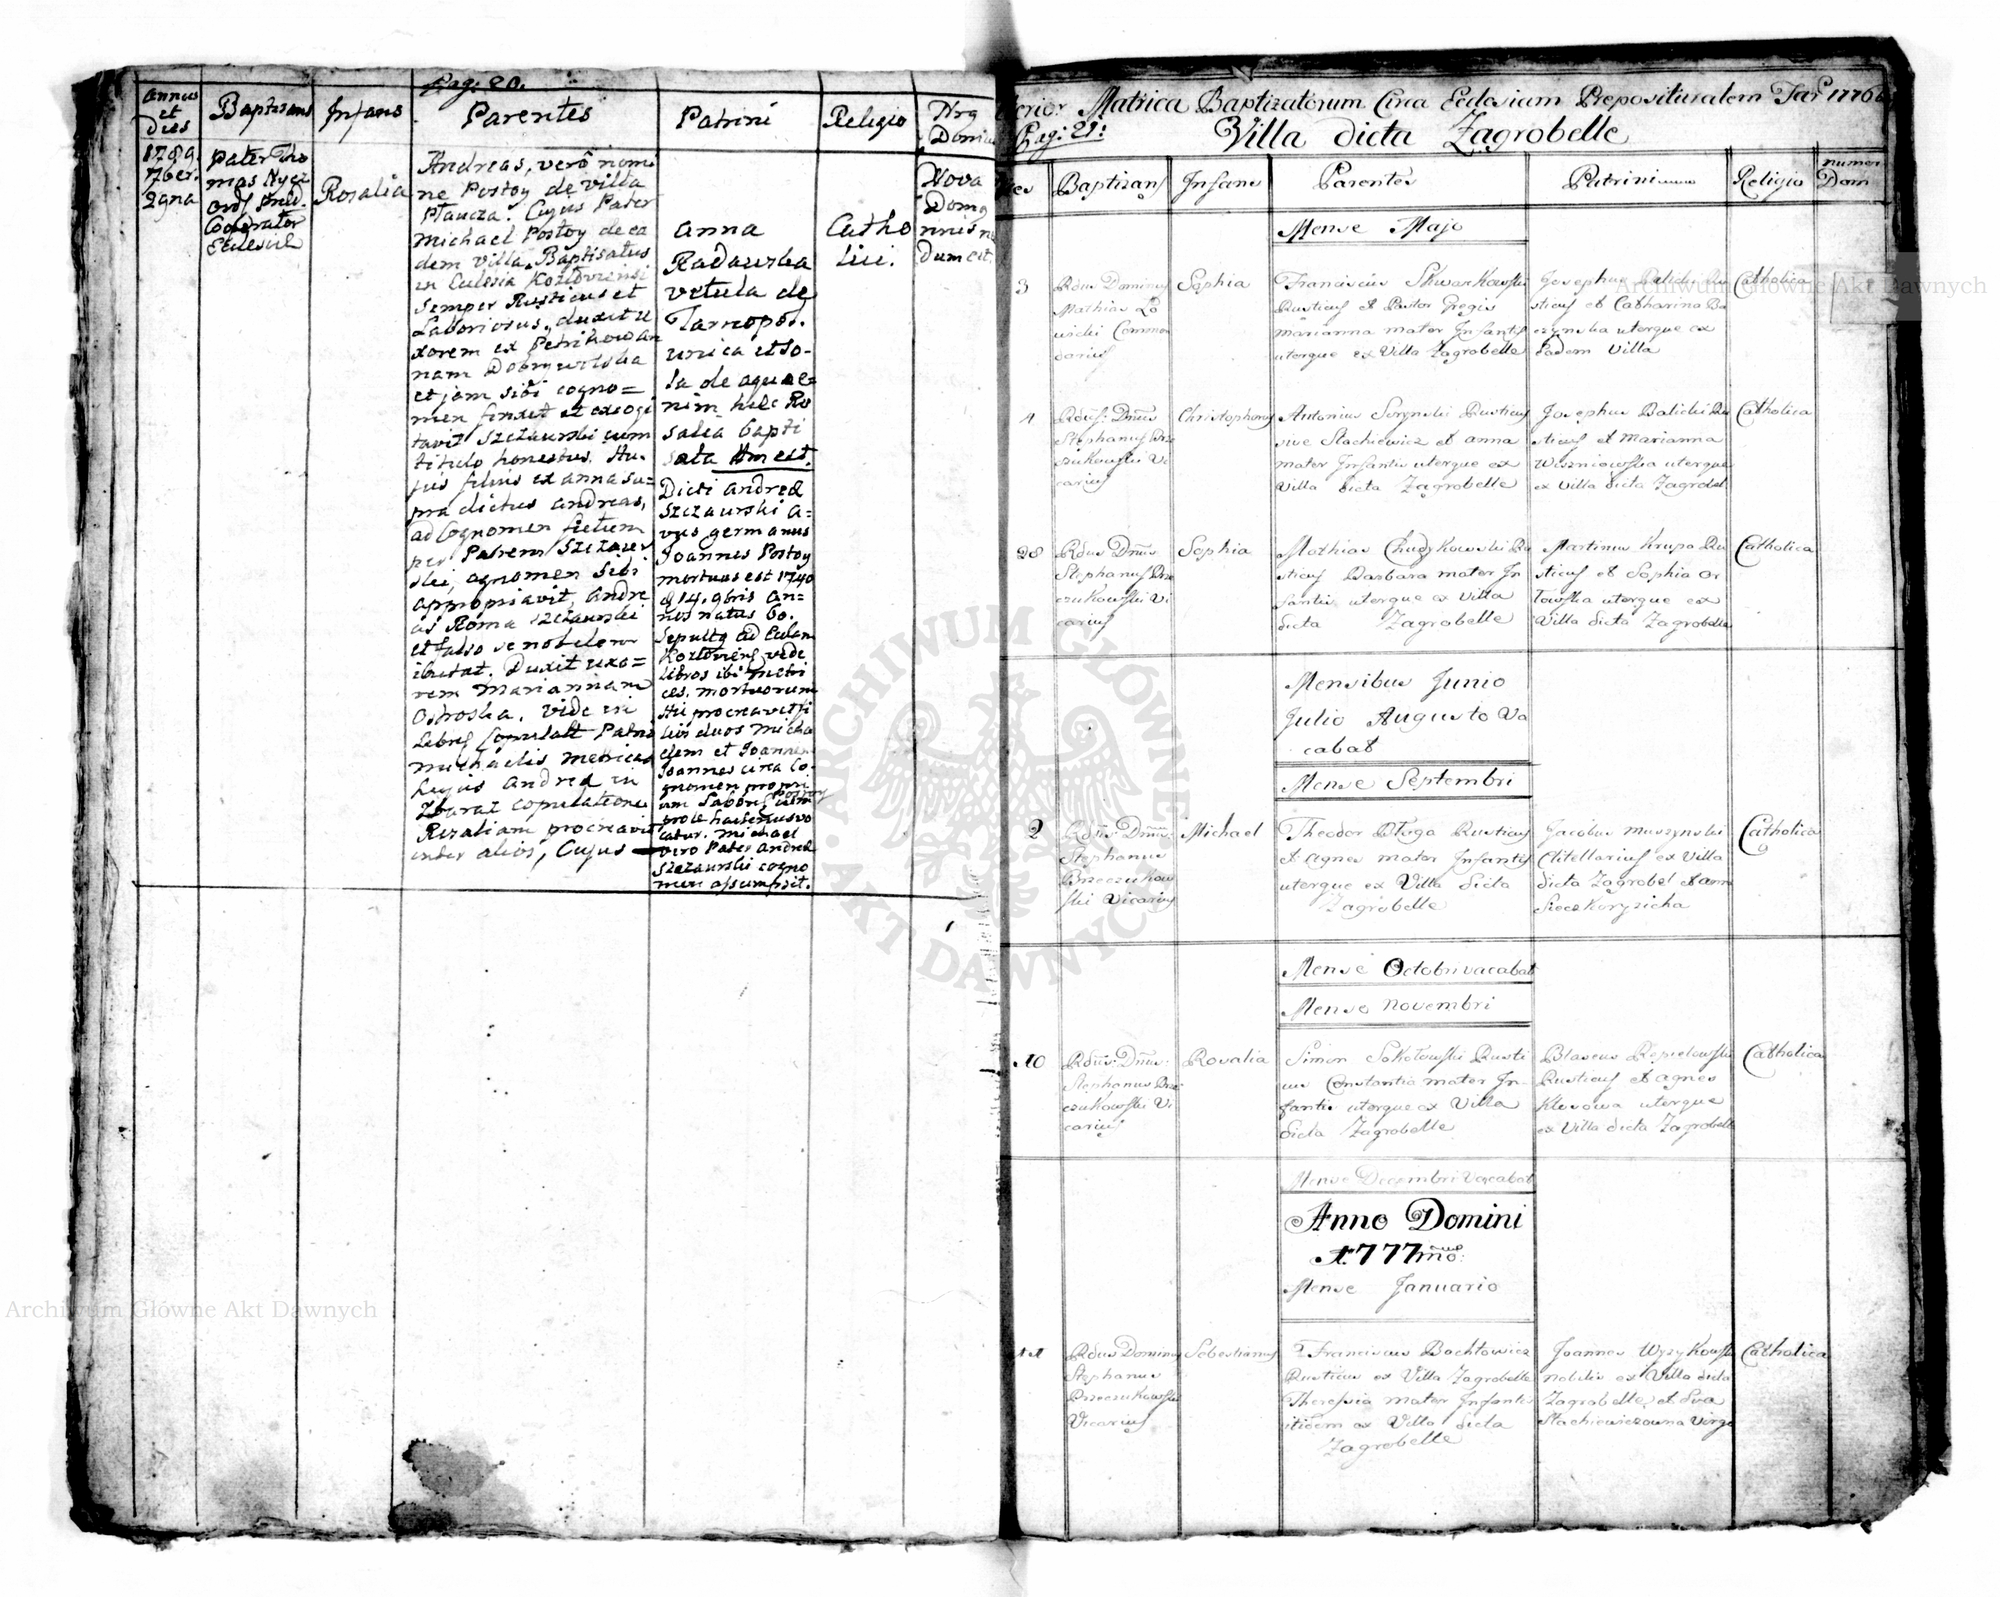 Pag: 20.
Annus et dies
Baptisans
Infans
Parentes
Patrini
Religio
Nrq Domus
1789.
7ber.
2gna
Pater Tho
mas Nycz
Ord
Cooperator
Ecclesiæ
Rosalia
Andreas, verô nomi
ne Postoy de villa
Płaucza. Cujus Pater
Michael Postoy de ea
dem villa. Baptisatus
in Eclesia Kozłoviensi
Semper Rusticus et
Laboriosus, duxit u
xorem ex Petrikow an
nam
et jam sibi cogno=
men finxit et excogi
tavit Szczaurski cum
titulo honestus. Hu-
jus filius ex anna su=
pra dictus andreas,
ad Cognomen fictum
per Patrem Szczaur
ski, agnomen sibi
appropriavit, Andre
as Roma Szczaurski
et falso se nobilem
. Duxit uxo=
rem Mariannam
Ostroska, vide in
Libris Copulat Patris
Michaelis metrices
Cujus Andreæ in
Zbaraz copulatione
Rozaliam procreavit
inter alios, Cujus
Anna
Radawska
vetula de
Tarnopol.
unica et so-
la de aqua e=
nim hæc Ro
salia bapti
sata est.
Dicti Andreæ
Szczaurski a=
vus germanus
Joannes Postoy
mortuus est 1740
d 14. 9bris an=
nos natus 60.
Sepultq ad Eccleam
Kozłoviens vide
libros ibi metri
ces, mortuorum
Hic procreavit fi
lios duos Micha
elem et Joannem
Joannes circa Co-
gnomen propri
um Labors cum Postoy
prole hactenus vo
catur. Michael
vero Pater Andreæ
Szczaurski cogno
men assumpsit.
Catho
lici.
Nova
Domq
nris n
dum est.
Matrica Baptizatorum Circa Eclesiam Prepositualem Tar 1776
Pag: 21:
Villa dicta Zagrobelle
Baptizans
Infans
Parentes
Patrini
Religio
numer Dom
Mense Majo
3
Rdus Dominus
Mathias Lo
wicki Commen
darius
Sophia
Franciscus Skwarkowski
Rusticus et Pastor Gregis
Marianna mater Infantis
uterque ex Villa Zagrobelle
Josephus Balicki Ru
sticus et Catharina Ba
czynska uterque ex
Eadem Villa
Catholica
4
Rdus: Dnus
Stephanus Brze
czukowski Vi
carius
Christophorus
Antonius Serynski Rusticus
sive Stachiewicz et anna
mater Infantis uterque ex
Villa dicta Zagrobelle
Josephus Balicki Ru
sticus et Marianna
Wiszniowska uterque
ex Villa dicta Zagrobel
Catholica
28
Rdus Dnus
Stephanus Brze
czukowski Vi
carius
Sophia
Mathias Chudzkowski Ru
sticus Barbara mater In
fantis uterque ex Villa
dicta Zagrobelle
Martinus Krupa Ru
sticus et Sophia Or
łowska uterque ex
Villa dicta Zagrobelle
Catholica
Mensibus Junio
Julio Augusto Va
cabat
Mense Septembri
2
Rdus Dnus:
Stephanus
Brzeczukow
ski Vicarius
Michael
Theodor Długa Rusticus
et Agnes mater Infantis
uterque ex Villa dicta
Zagrobelle
Jacobus Muszynski
Clitellarius ex Villa
dicta Zagrobel et anna
Sieczkoryzicha
Catholica
Mense Octobri vacabat
Mense Novembri
10
Rdus: Dnus:
Stephanus Brze
czukowski Vi
carius
Rosalia
Simon Sokołowski Rusti
cus Constantia mater In-
fantis uterque ex Villa
dicta Zagrobelle
Blaseus Kopiełowski
Rusticus et agnes
Klosowa uterque
ex Villa dicta Zagrobelle
Catholica
Mense Decembri Vacabat
Anno Domini
1777mo:
Mense Januario
11
Rdus Dominus
Stephanus
Brzeczukowski
Vicarius
Sebestianus
Franciscus Bochłowicz
Rusticus ex Villa Zagrobelle
Theresia mater Infantis
itidem ex Villa dicta
Zagrobelle
Joannes Wyzykowski
nobilis ex Villa dicta
Zagrobelle et Eva
Stachiewiczowna Virgo
Catholica
Archiwum Główne Akt Dawnych
Archiwum Główne Akt Dawnych
ARCHIWUM GŁÓWNE
AKT DAWNYCH